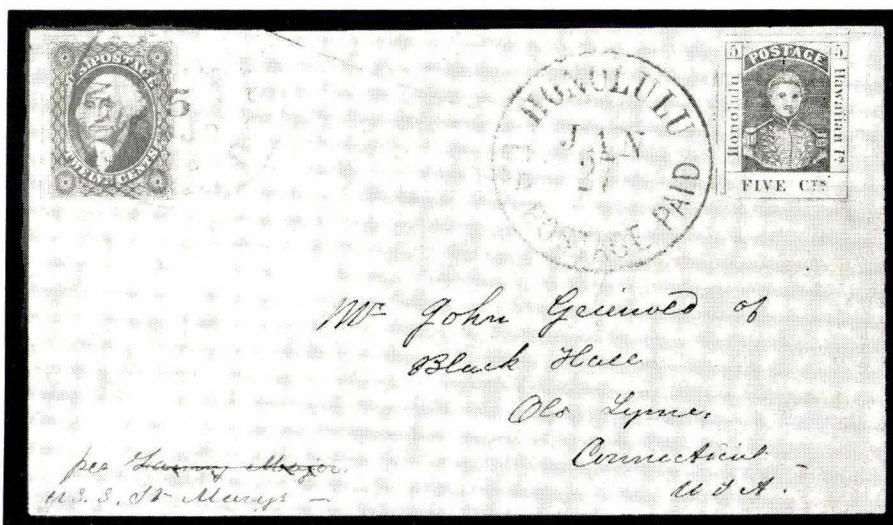 U.S. POSTAGE
TWELVE CENTS
5
HONOLULU
JAN
U.S. POSTAGE PAID
5 POSTAGE 5
Honolulu
Hawaiian Is.
FIVE CTS
Mr John of
Black Hall
Old Lyme,
Connecticut
U S A. -
per
U.S.S. St Marys -